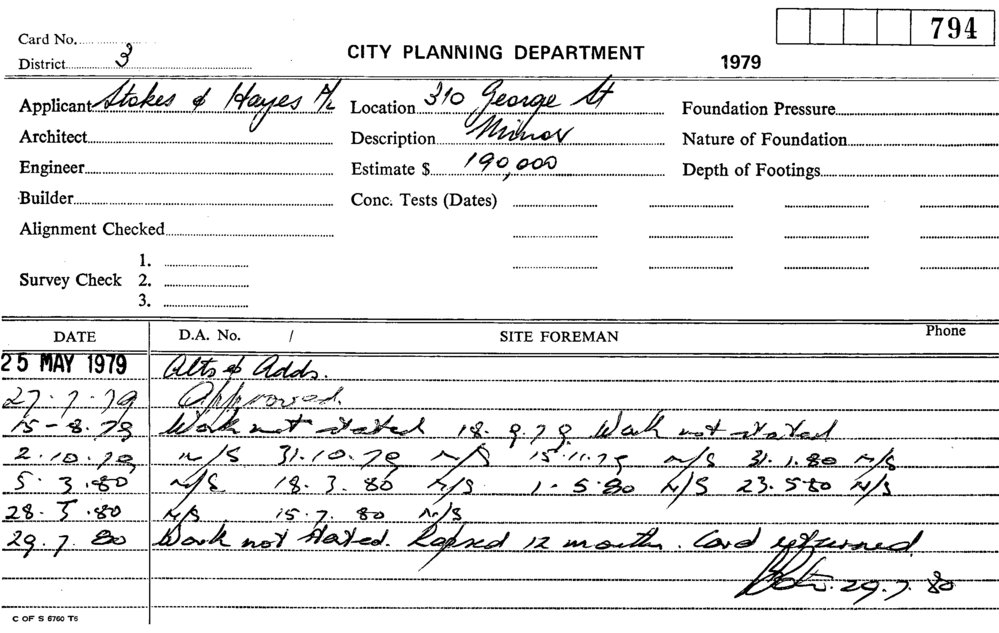 794
Card No.
District 3
CITY PLANNING DEPARTMENT 1979
Applicant Stokes & Hayes P/L Location 310 George St Foundation Pressure
Architect Description Minor Nature of Foundation
Engineer Estimate $ 190,000 Depth of Footings
Builder Conc. Tests (Dates)
Alignment Checked
1.
Survey Check 2.
3.
DATE D.A. No. / SITE FOREMAN Phone
25 MAY 1979 Alts & Adds.
27.7.79 Approved.
15-8.79 Work not started 18.9.79. Work not started
2.10.79 N/S 31.10.79 N/S 15.11.79 N/S 31.1.80 N/S
5.3.80 N/S 18.3.80 N/S 1-5.80 N/S 23.5.80 N/S
28.5.80 N/S 15.7.80 N/S
29.7.80 Work not started. Lapsed 12 months. Card returned
29.7.80
C OF S 6760 T6